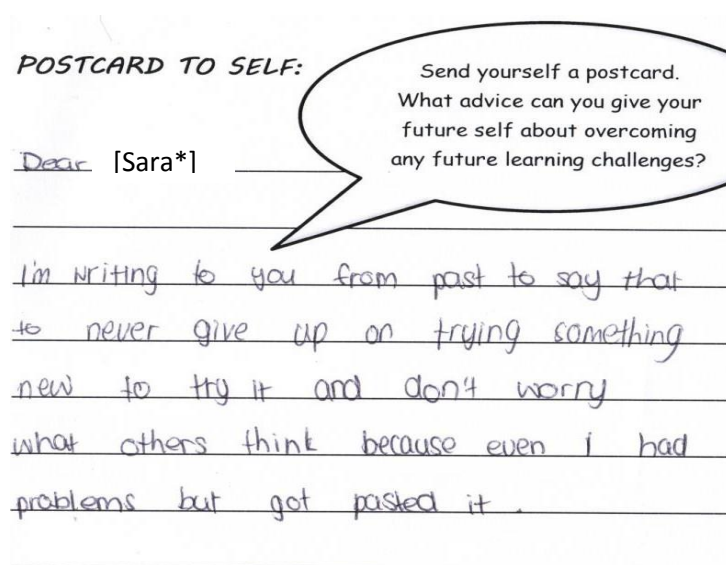 POSTCARD TO SELF:
Send yourself a postcard.
What advice can you give your
future self about overcoming
any future learning challenges?
Dear [Sara*]
I'm writing to you from past to say that
to never give up on trying something
new to try it and don't worry
what others think because even i had
problems but got pasted it.